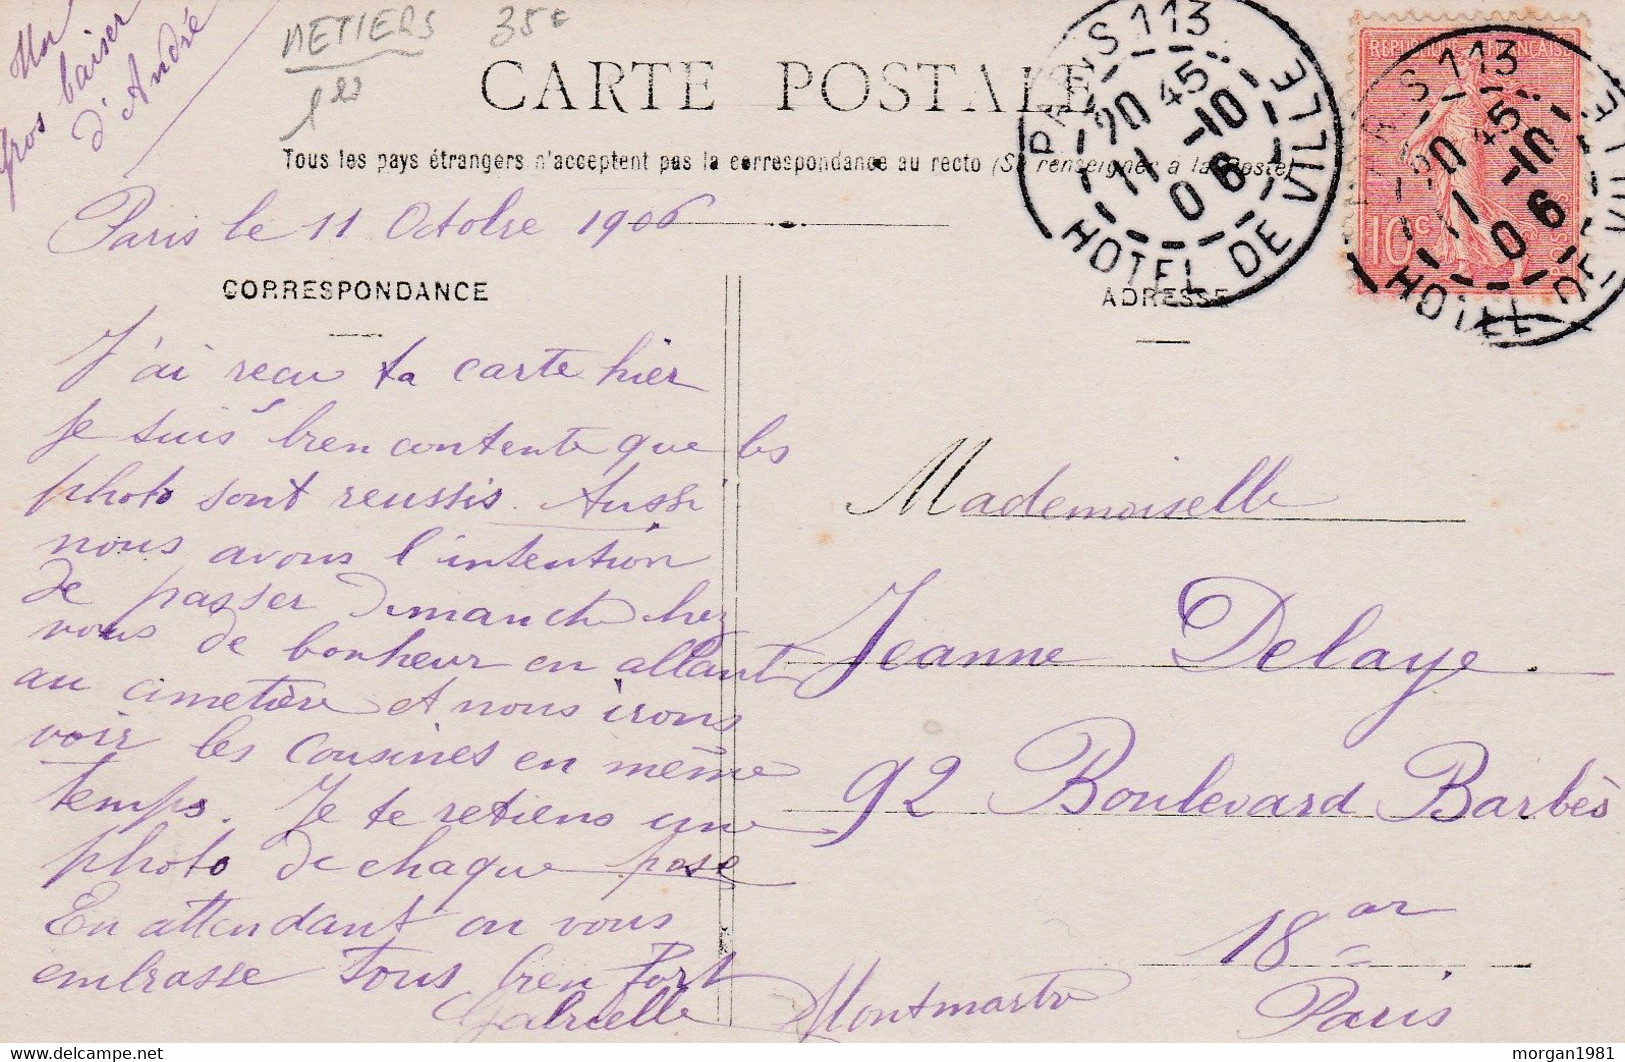 Un
gros baiser
d'André
METIERS 35€
CARTE POSTALE
Tous les pays étrangers n'acceptent pas la correspondance au recto (Se renseigner à la Poste)
Paris le 11 Octobre 1906
CORRESPONDANCE
J'ai recu ta carte hier
je suis bien contente que les
photo sont reussis. Aussi
nous avons l'intention
de passer Dimanch chez
vous de bonheur en allant
au cimetière et nous irons
voir les cousines en même
temps. Je te retiens une
photo de chaque pose
En attendant on vous
embrasse Tous bien Fort
Gabrielle
PARIS 113
20 45
11 -10
06
HOTEL DE VILLE
REPUBLIQUE FRANCAISE
10c
PARIS 113
20 45
11 -10
06
HOTEL DE VILLE
ADRESSE
Mademoiselle
Jeanne Delaye.
92 Boulevard Barbès
18 ar
Montmartre Paris
morgan1981